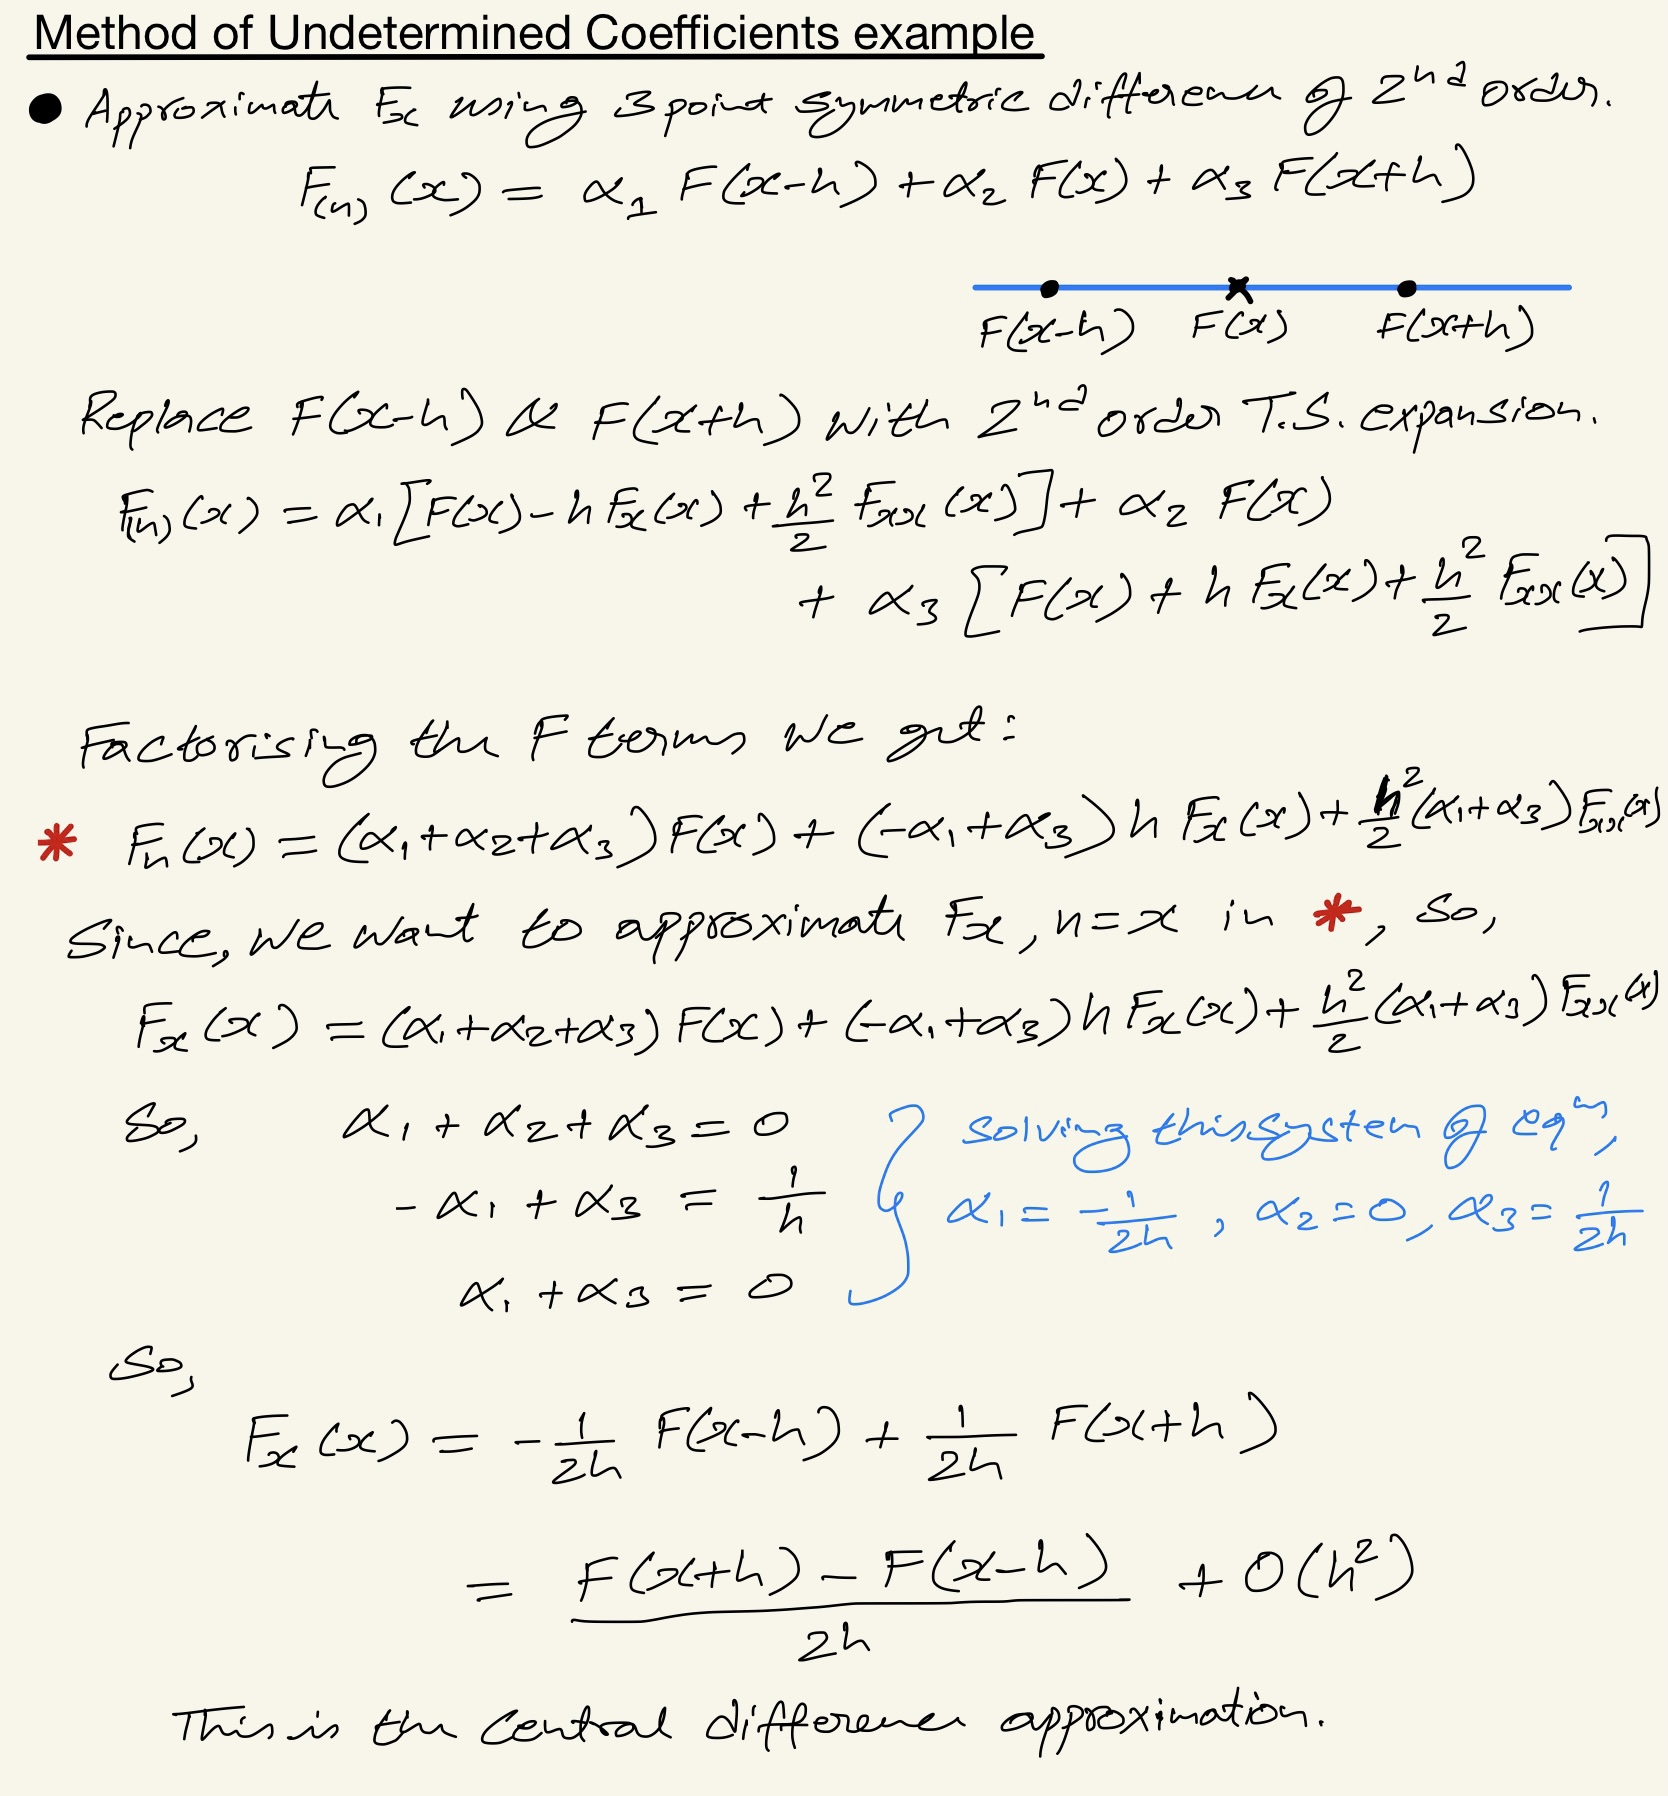 Method of Undetermined Coefficients example
● Approximate Fₓ using 3 point symmetric difference of 2ⁿᵈ order.
F₍ₙ₎(x) = α₁ F(x-h) + α₂ F(x) + α₃ F(x+h)
F(x-h) F(x) F(x+h)
Replace F(x-h) & F(x+h) with 2ⁿᵈ order T.S. expansion.
F₍ₙ₎(x) = α₁[F(x) - h Fₓ(x) + h²/2 Fₓₓ(x)] + α₂ F(x)
+ α₃ [F(x) + h Fₓ(x) + h²/2 Fₓₓ(x)]
Factorising the F terms we get:
* Fₙ(x) = (α₁+α₂+α₃)F(x) + (-α₁+α₃)h Fₓ(x) + h²/2 (α₁+α₃)Fₓₓ(x)
Since, we want to approximate Fₓ, n=x in *, so,
Fₓ(x) = (α₁+α₂+α₃) F(x) + (-α₁+α₃)h Fₓ(x) + h²/2 (α₁+α₃) Fₓₓ(x)
So, α₁ + α₂ + α₃ = 0
-α₁ + α₃ = 1/h
α₁ + α₃ = 0
solving this system of eqⁿ,
α₁ = -1/2h , α₂ = 0, α₃ = 1/2h
So,
Fₓ(x) = -1/2h F(x-h) + 1/2h F(x+h)
= F(x+h) - F(x-h)/2h + O(h²)
This is the central difference approximation.